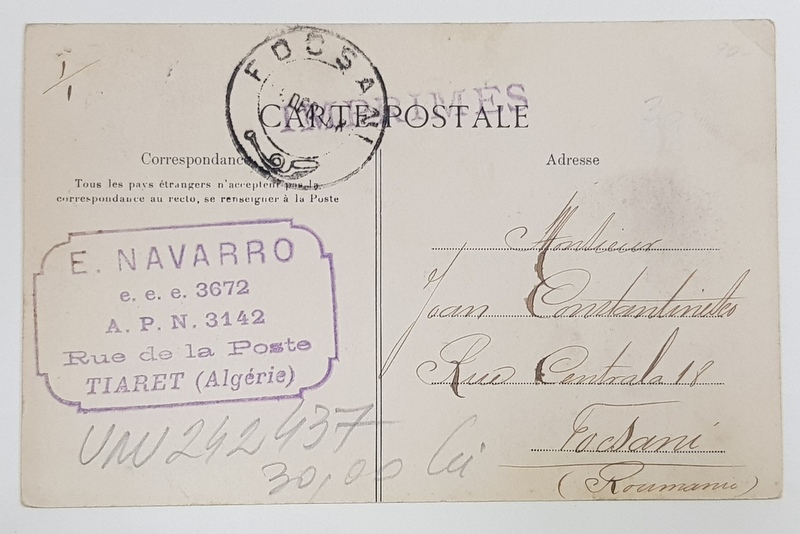 1/1
FOCSANI
DEC
IMPRIMÉS
CARTE POSTALE
Correspondance
Adresse
Tous les pays étrangers n'acceptent pas la
correspondance au recto, se renseigner à la Poste
E. NAVARRO
e. e. e. 3672
A. P. N. 3142
Rue de la Poste
TIARET (Algérie)
Monsieur
Joan Constantinesco
Rue Centrala 18
Focsani
(Roumanie)
UNV 242437
30,00 lei